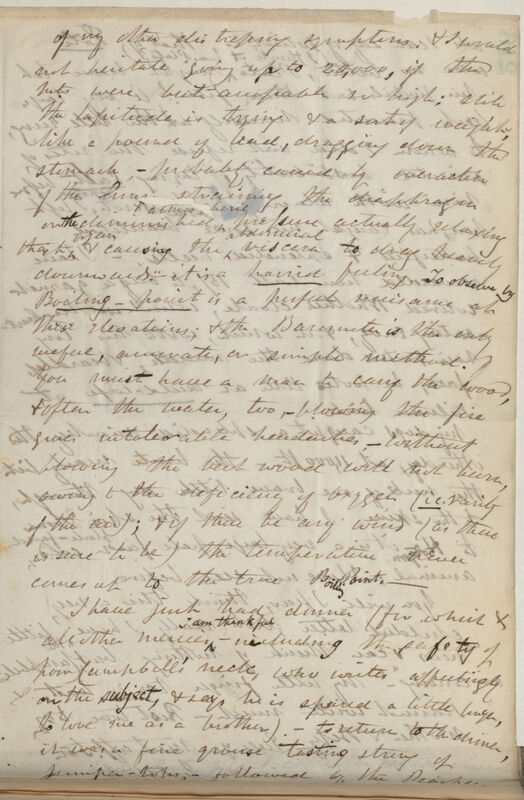 of my other distressing symptoms. & I would
not hesitate going up to 20,000, if the
were but accessible so high; still
the lassitude is trying & a sort of weight,
like a pound of lead, dragging down the
stomach, — probably caused by overaction
of the straining the diaphragm
atmospheric
on the diminished pressure actually relaxing
that organ & causing the abdominal viscera to drag heavily
downwards: it is a horrid feeling. To observe by
Boiling-point is a perfect nuisance at
these elevations: & the Barometer is the only
useful, accurate, or simple method.
You must have a man to carry the wood,
& often the water, too, — blowing the fire
gives intolerable headaches — without
blowing the best wood will not burn,
owing to the deficiency of oxygen (i.e. rarity
of the air); & if there be any wind (as there
is sure to be) the temperature never
comes up to the true Boilg Point. —
I have just had dinner (for which &
all other mercies, I am thankful — including the safety of
poor Campbell's neck, who writes affectingly
on the subject, & says he is spared a little longer,
to love me as a brother). — to return to the dinner,
it was a fine grouse tasting strong of
Juniper-tops, — followed by the